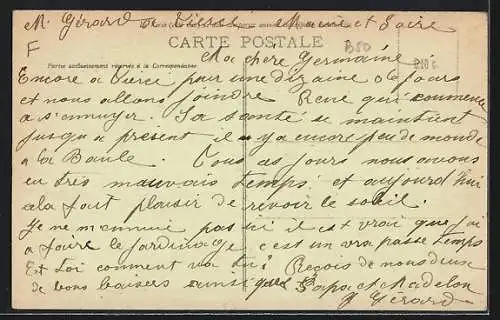 M. Gérard de Diesel Maine et Loire
F
CARTE POSTALE
B80
Partie exclusivement réservée à la Correspondance.
Ma chère Germaine
Encore à pour une dizaine de jours
et nous allons joindre René qui commence
a s'ennuyer. Sa santé se maintient
jusqu'a présent il y a encore peu de monde
a la Baule. Tous ces jours nous avons
eu très mauvais temps et aujourd'hui
cela fait plaisir de revoir le soleil.
Je ne m'ennuie pas ici il est vrai que j'ai
a faire le jardinage c'est un vrai passe temps
Et toi comment va tu? Reçois de nous deux
de bons baisers ainsi que Papa et Madelon
G Gérard